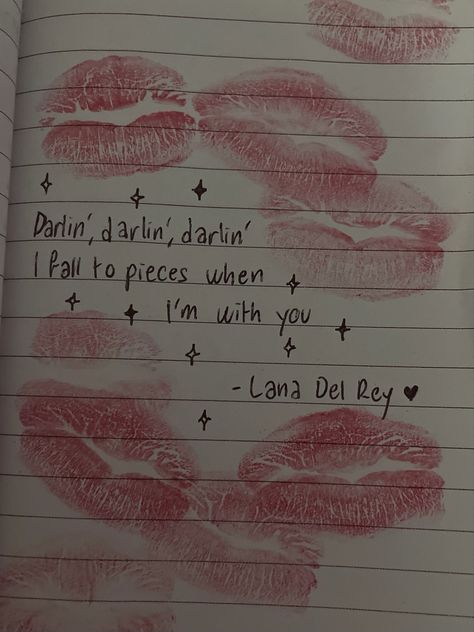 Darlin', darlin', darlin'
I fall to pieces when
I'm with you
- Lana Del Rey ♥